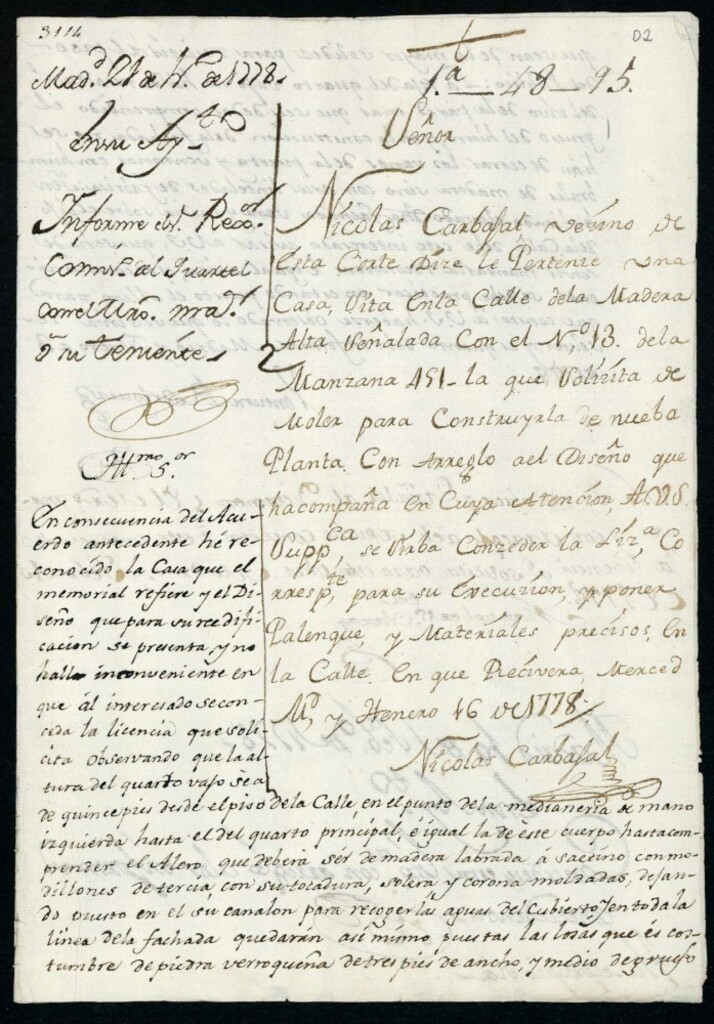 3114
02
Mad.d 21 de En.o de 1778.
En su Ay.to
Informe el S.r Rex.or
Comis.o del Quartel
con el Mro. mar.
ó su Teniente
Ill.mo S.or
En consecuencia del Acu-
erdo antecedente hé re-
conocido la Casa que el
memorial refiere y el Di-
seño que para su reedifi-
cacion se presenta, y no
hallo inconveniente en
que al interesado se con-
ceda la licencia que soli-
cita observando que la al-
tura del quarto vajo sea
1.a — 48 — 95.
Señor
Nicolas Carbajal vezino de
Esta Corte Dize le Pertenze una
Casa, Sita En la Calle dela Madera
Alta Señalada Con el N.o 13. dela
Manzana 451 - la que Solizita de
Moler para Construyrla de nueba
Planta Con Arreglo ael Diseño que
hacompaña en Cuya Atencion, A V.S.
Supp.ca se Sirba Conzeder la Liz.a Co
rresp.te para su Execuzion, y poner
Palenque, y Materiales precisos, En
la Calle En que Recivera Merced
M.d y Henero 16 de 1778
Nicolas Carbajal
de quince pies desde el piso de la Calle, en el punto de la medianeria de mano
izquierda hasta el del quarto principal, é igual la de este cuerpo hasta com-
prender el Alero, que deberá sér de madera labrada á saetino con mo-
dillones de tercia, con su tocadura, solera y corona moldadas, dejan-
do puesto en el su canalon para recoger las aguas del Cubierto; en toda la
linea dela fachada quedarán asi mismo puestas las losas que és cos-
tumbre de piedra verroqueña de tres pies de ancho, y medio de grueso